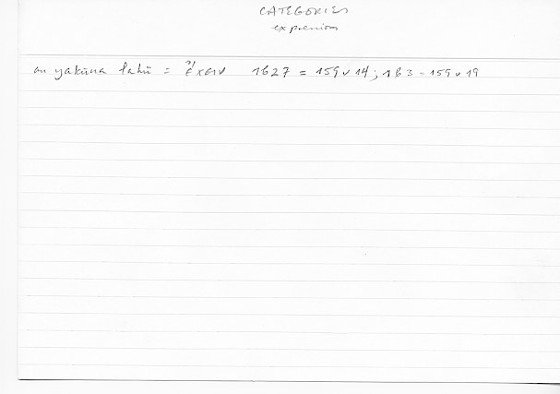 CATEGORIES
expressions
an yakūna lahū = ἔχειν 1b27 = 159v14; 1b3 - 159v19